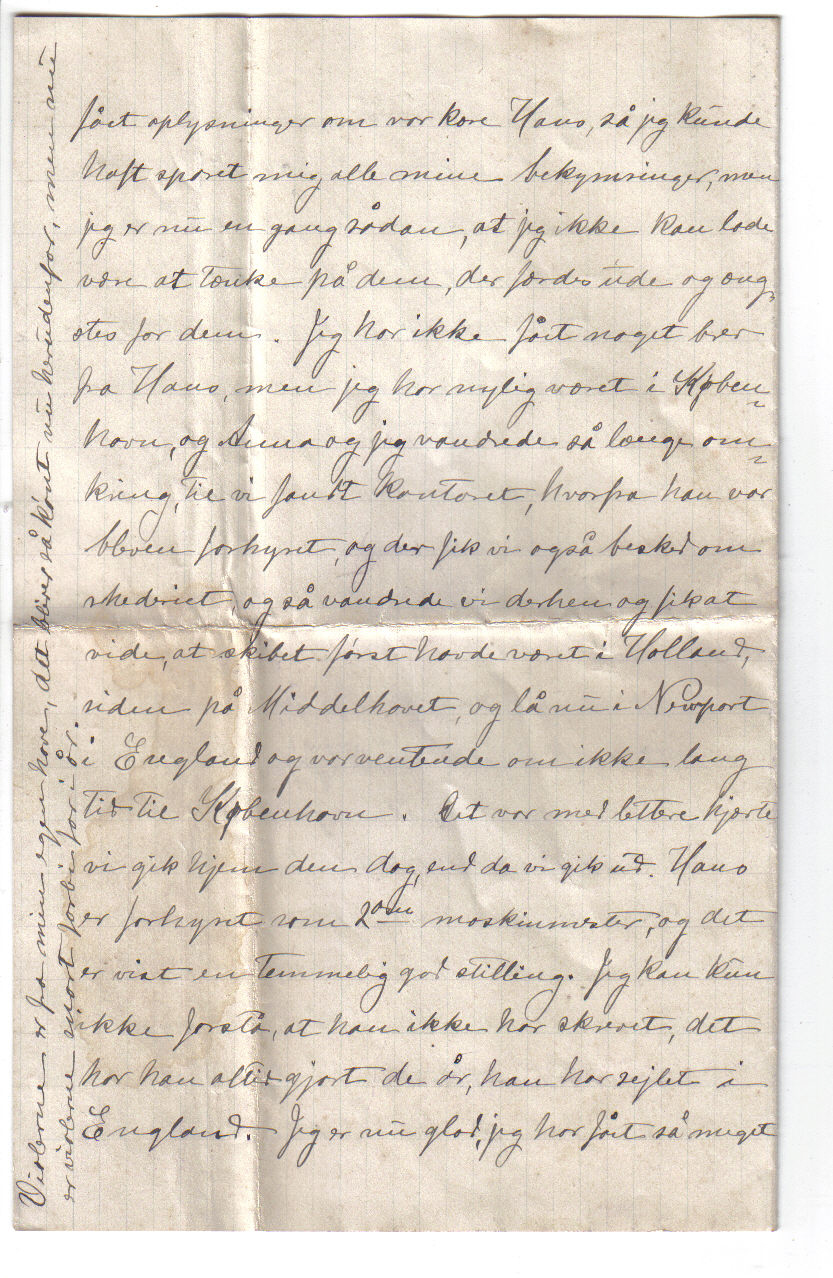 fået oplysninger om vor kære Hans, så jeg kunde
haft sparet mig alle mine bekymringer, men
jeg er nu en gang sådan, at jeg ikke kan lade
være at tænke på dem, der færdes ude og æng-
stes for dem. Jeg har ikke fået noget brev
fra Hans, men jeg har nylig været i Køben-
havn, og Anna og jeg vandrede så længe om-
kring, til vi fandt kontoret, hvorfra han var
bleven forhyret, og der fik vi også besked om
rhederiet, og så vandrede vi derhen og fik at
vide, at skibet først havde været i Holland,
siden på Middelhavet, og lå nu i Newport
i England og var ventende om ikke lang
tid til København. Det var med lettere hjærte
vi gik hjem den dag, end da vi gik ud. Hans
er forhyret som 2den maskinmester, og det
er vist en temmelig god stilling. Jeg kan kun
ikke forstå, at han ikke har skrevet, det
har han altid gjort de år, han har sejlet i
England. Jeg er nu glad, jeg har fået så meget
Violerne er fra min egen have, det bliver så kønt nu herudenfor, men nu
er violerne snart forbi for i år.